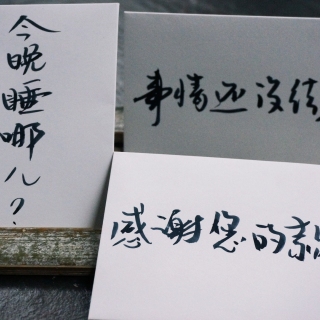 今晚睡哪儿？
事情还没结
感谢您的亲